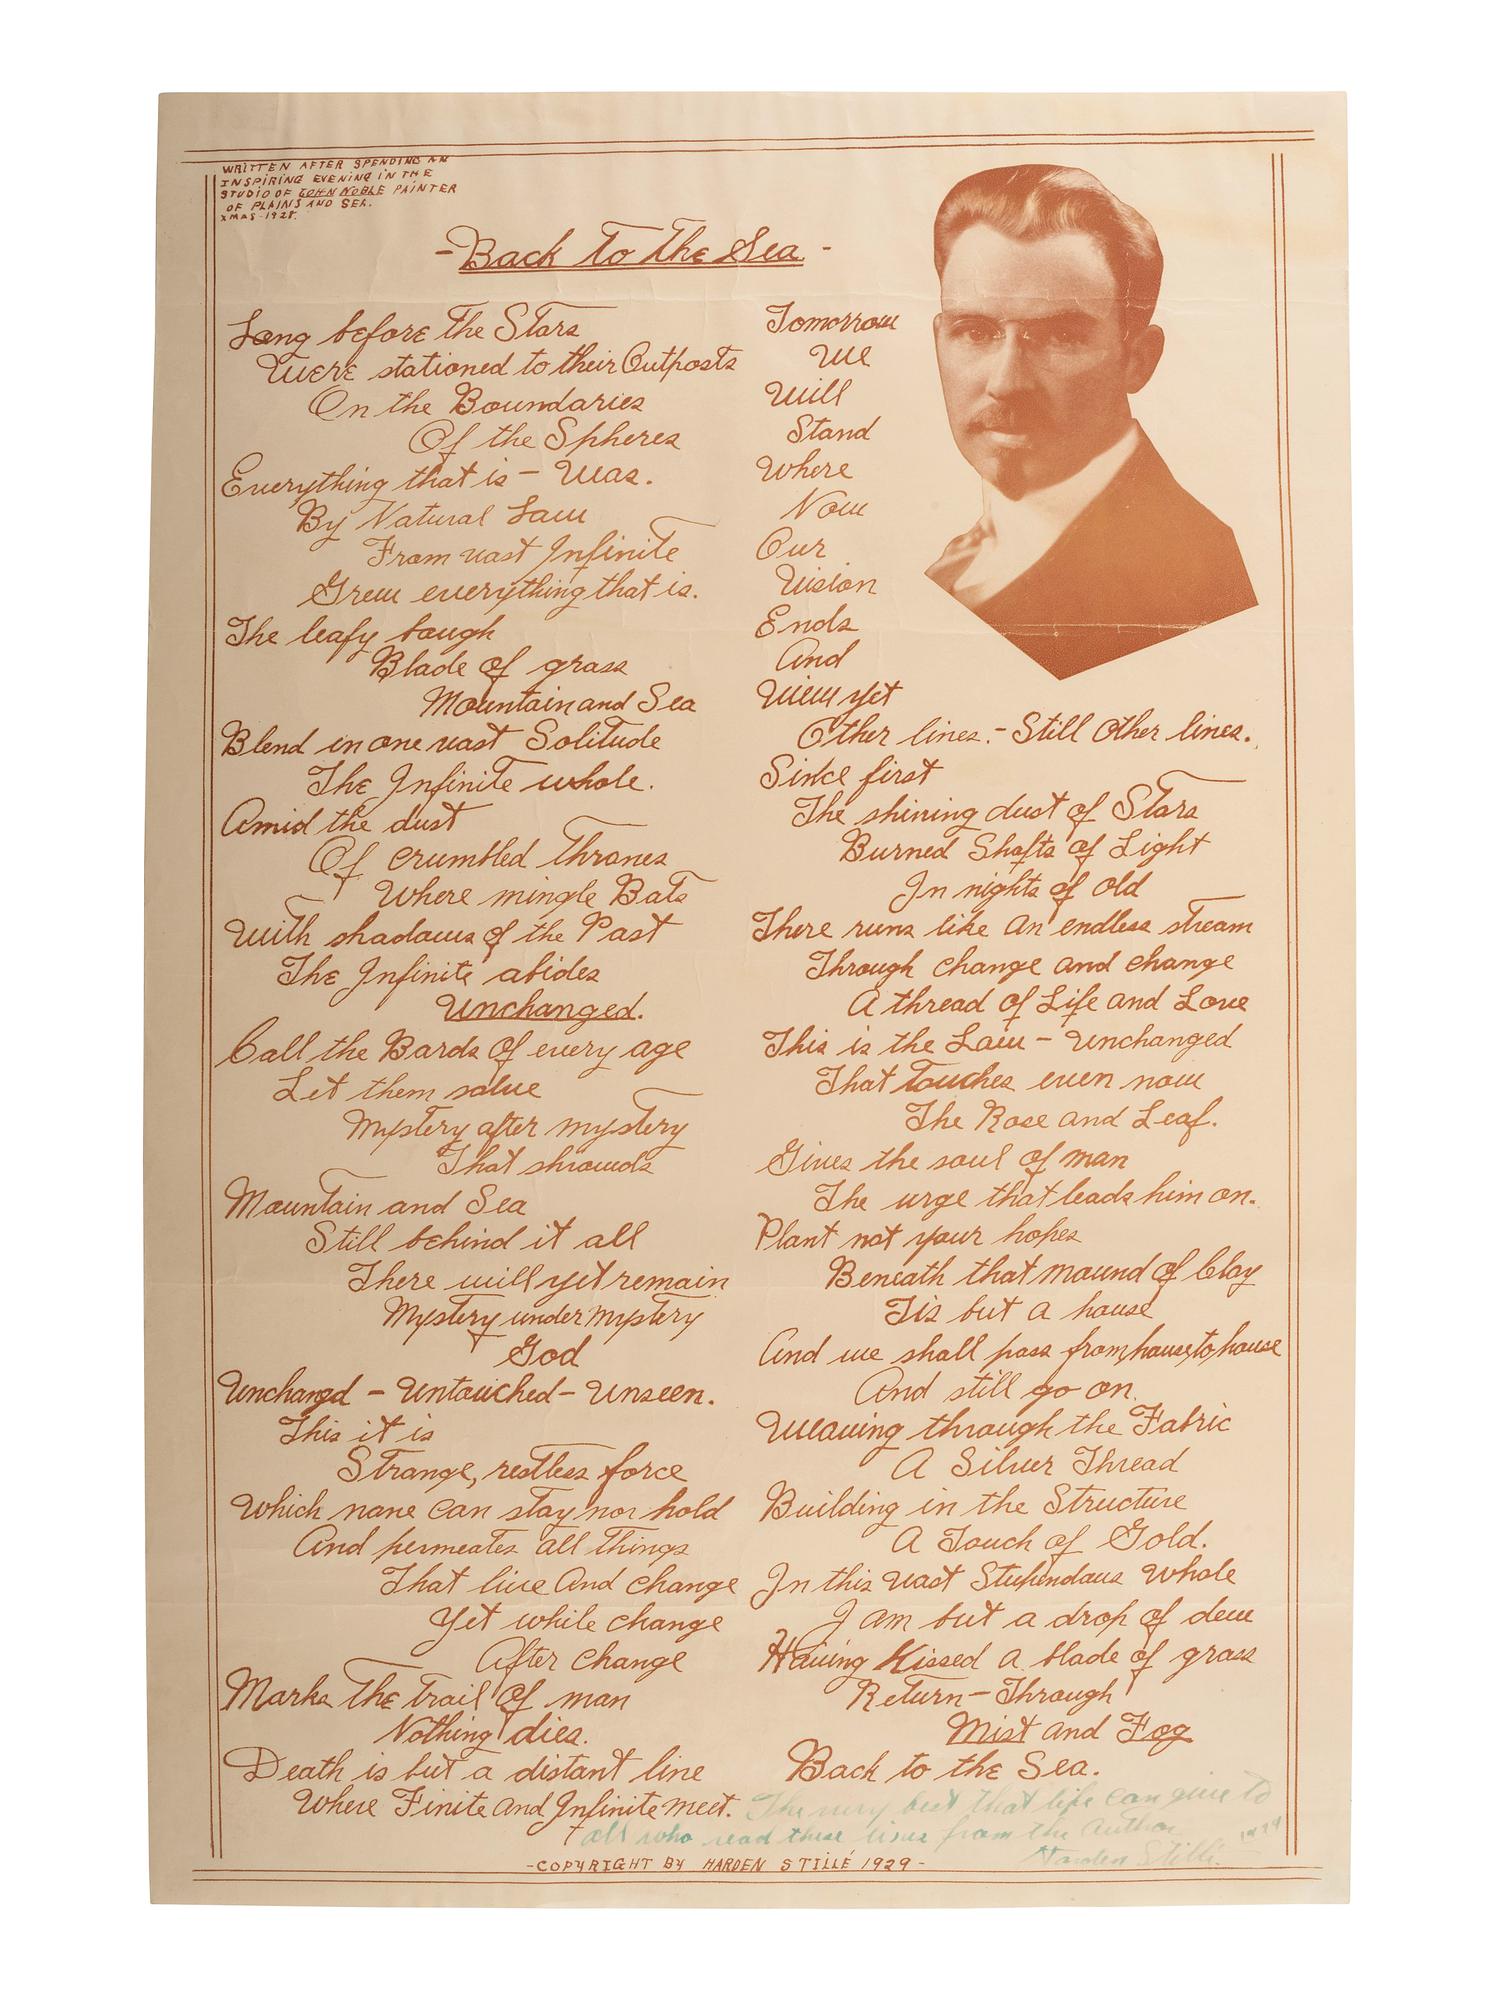 WRITTEN AFTER SPENDING AN
INSPIRING EVENING IN THE
STUDIO OF JOHN NOBLE PAINTER
OF PLAINS AND SEA.
XMAS-1928.
-Back to The Sea-
Long before the Stars
Were stationed to their Outposts
On the Boundaries
Of the Spheres
Everything that is - Was.
By Natural Law
From vast Infinite
Grew everything that is.
The leafy bough
Blade of grass
Mountain and Sea
Blend in one vast Solitude
The Infinite whole.
Amid the dust
Of crumbled Thrones
Where mingle Bats
With shadows of the Past
The Infinite abides
Unchanged.
Call the Bards of every age
Let them solve
Mystery after mystery
That shrouds
Mountain and Sea
Still behind it all
There will yet remain
Mystery under mystery
God
Unchangd - Untouched - Unseen.
This it is
Strange, restless force
Which none can stay nor hold
And permeates all things
That live And change
Yet while change
After change
Marks The trail Of man
Nothing dies.
Death is but a distant line
Where Finite and Infinite meet.
Tomorrow
We
Will
Stand
Where
Now
Our
Vision
Ends
And
View yet
Other lines. - Still Other lines.
Since first
The shining dust of Stars
Burned Shafts of Light
In nights of old
There runs like An endless stream
Through change and change
A thread of Life and Love
This is the Law - Unchanged
That Touches even now
The Rose and Leaf.
Gives the soul of man
The urge that leads him on.
Plant not your hopes
Beneath that mound of Clay
Tis but a house
And we shall pass from, house, to, house
And still go on.
Weaving through the Fabric
A Silver Thread
Building in the Structure
A Touch of Gold.
In this Vast Stupendous Whole
I am but a drop of dew
Having Kissed a blade of grass
Return - Through
Mist and Fog
Back to the Sea.
The very best that life can give to
all who read these lines from the Author
Harden Stillé
-COPYRIGHT BY HARDEN STILLÉ 1929-